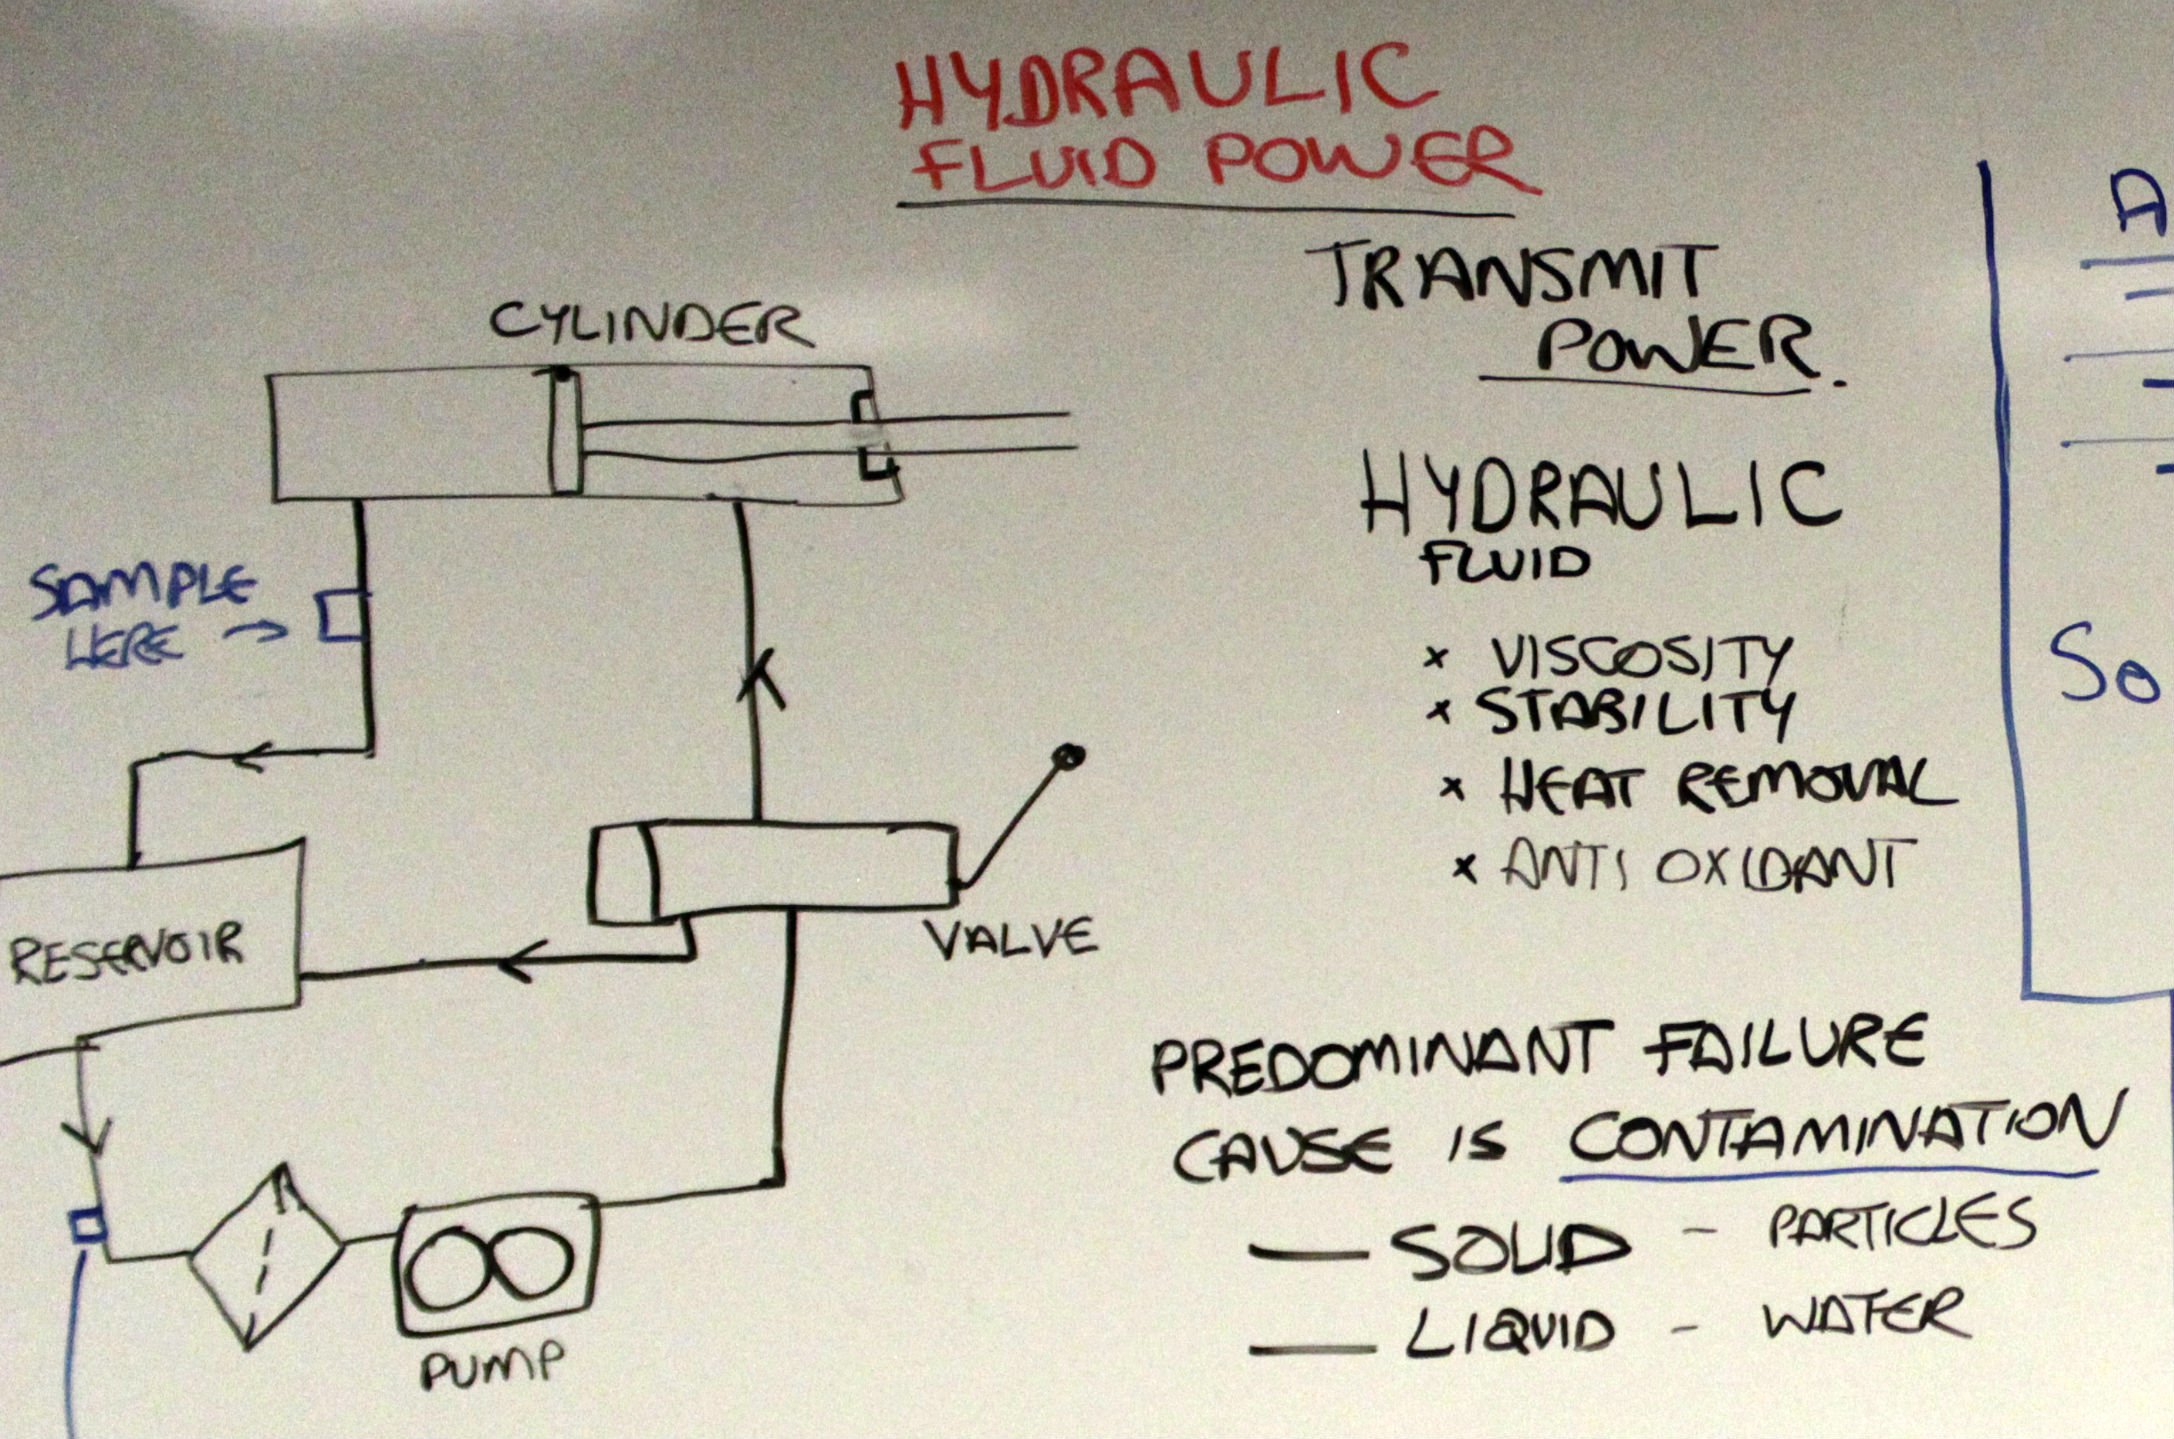 HYDRAULIC
FLUID POWER
TRANSMIT
POWER.
CYLINDER
HYDRAULIC
FLUID
SAMPLE
HERE →
x VISCOSITY
x STABILITY
x HEAT REMOVAL
x ANTI OXIDANT
RESERVOIR
VALVE
PREDOMINANT FAILURE
CAUSE IS CONTAMINATION
— SOLID - PARTICLES
— LIQUID - WATER
PUMP
A
So